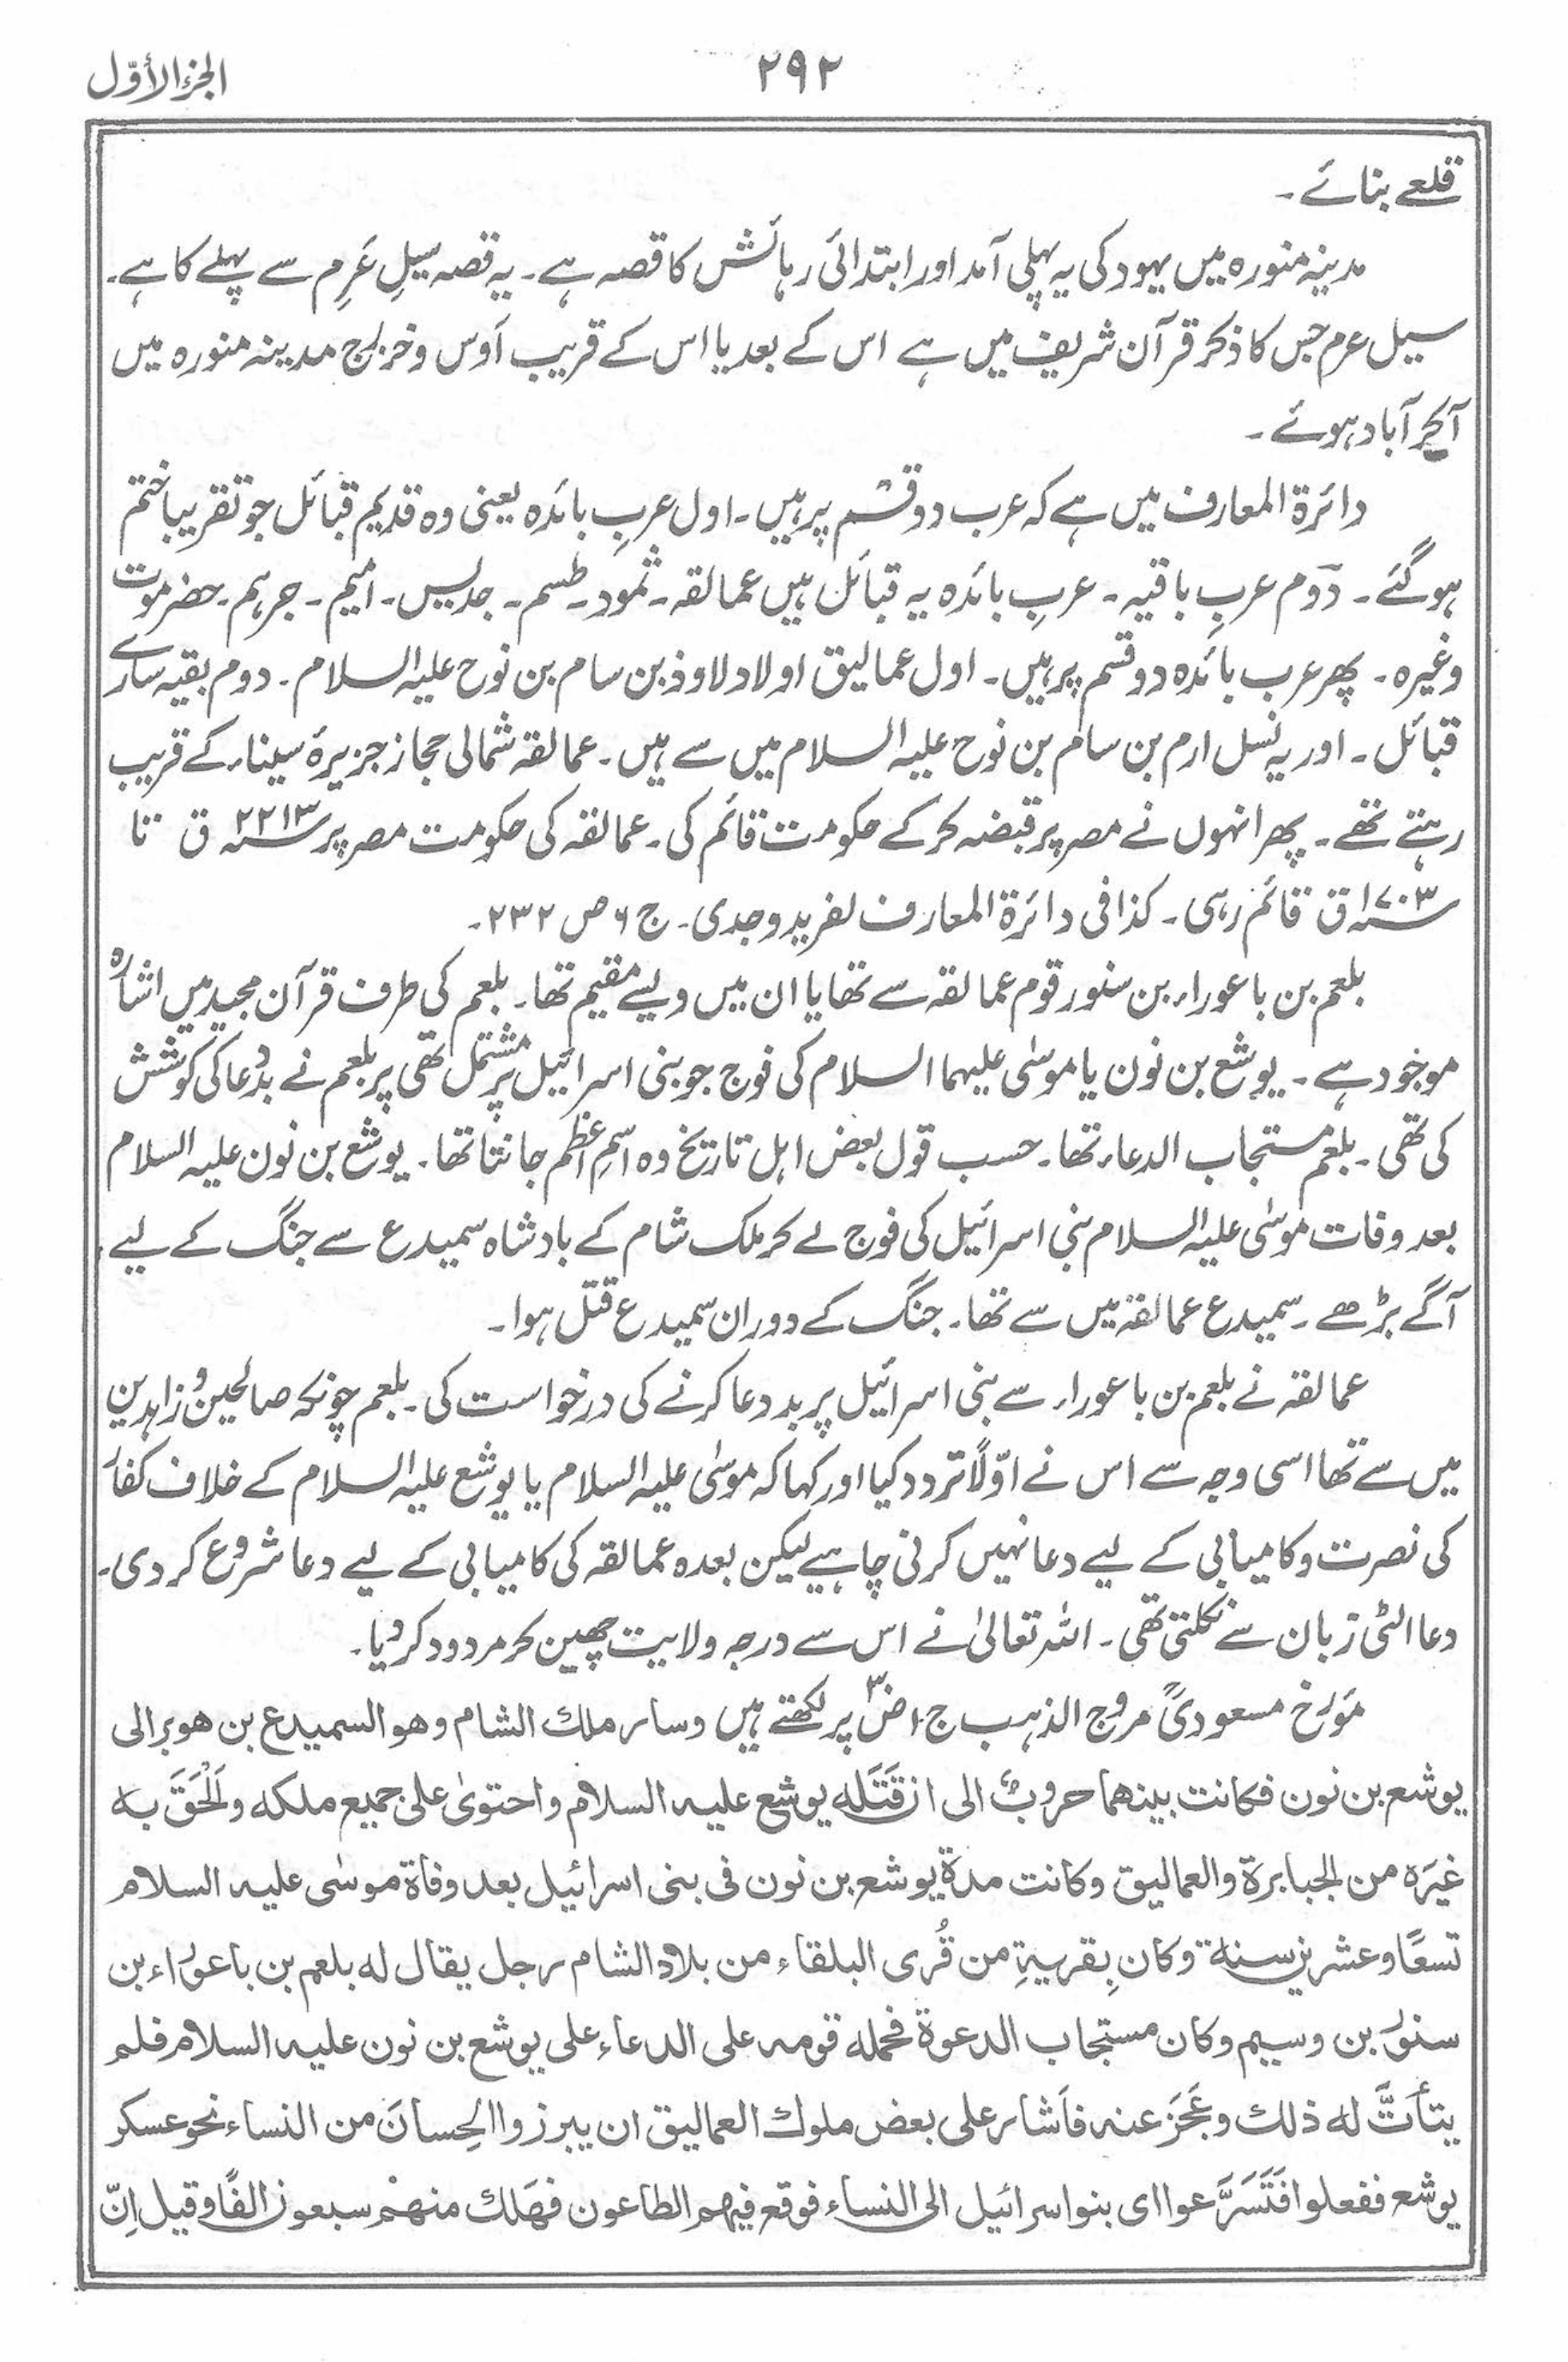 الجزء الأوّل
۲۹۲
قلعے بنائے ۔
مدینہ منورہ میں یہود کی یہ پہلی آمد اور ابتدائی رہائش کا قصہ ہے ۔ یہ قصہ سیلِ عَرِم سے پہلے کا ہے ۔
سیل عرم جس کا ذکر قرآن شریف میں ہے اس کے بعد یا اس کے قریب اَوس و خزرج مدینہ منورہ میں
آکر آباد ہوئے ۔
دائرۃ المعارف میں ہے کہ عرب دو قسم پر ہیں ۔ اول عربِ بائدہ یعنی وہ قدیم قبائل جو تقریبا ختم
ہو گئے ۔ دوم عربِ باقیہ ۔ عربِ بائدہ یہ قبائل ہیں عمالقہ ۔ ثمود ۔ طسم ۔ جدیس ۔ امیم ۔ جرہم ۔ حضرموت
وغیرہ ۔ پھر عرب بائدہ دو قسم پر ہیں ۔ اول عمالیق اولاد لاوذ بن سام بن نوح علیہ السلام ۔ دوم بقیہ سارے
قبائل ۔ اور یہ نسل ارم بن سام بن نوح علیہ السلام میں سے ہیں ۔ عمالقہ شمالی حجاز جزیرۂ سیناء کے قریب
رہتے تھے ۔ پھر انہوں نے مصر پر قبضہ کر کے حکومت قائم کی ۔ عمالقہ کی حکومت مصر پر ۲۲۱۳؁ ق تا
۱۷۰۳؁ ق قائم رہی ۔ کذا فی دائرۃ المعارف لفرید وجدی ۔ ج ۶ ص ۲۳۲ ۔
بلعم بن باعوراء بن سنور قوم عمالقہ سے تھا یا ان میں ویسے مقیم تھا ۔ بلعم کی طرف قرآن مجید میں اشارہ
موجود ہے ۔ یوشع بن نون یا موسیٰ علیہما السلام کی فوج جو بنی اسرائیل پر مشتمل تھی پر بلعم نے بددعا کی کوشش
کی تھی ۔ بلعم مستجاب الدعاء تھا ۔ حسب قول بعض اہل تاریخ وہ اسمِ اعظم جانتا تھا ۔ یوشع بن نون علیہ السلام
بعد وفات موسیٰ علیہ السلام بنی اسرائیل کی فوج لے کر ملک شام کے بادشاہ سمیدع سے جنگ کے لیے
آگے بڑھے ۔ سمیدع عمالقہ میں سے تھا ۔ جنگ کے دوران سمیدع قتل ہوا ۔
عمالقہ نے بلعم بن باعوراء سے بنی اسرائیل پر بددعا کرنے کی درخواست کی ۔ بلعم چونکہ صالحین و زاہدین
میں سے تھا اسی وجہ سے اس نے اوّلاً تردد کیا اور کہا کہ موسیٰ علیہ السلام یا یوشع علیہ السلام کے خلاف کفار
کی نصرت و کامیابی کے لیے دعا نہیں کرنی چاہیے لیکن بعدہ عمالقہ کی کامیابی کے لیے دعا شروع کر دی ۔
دعا الٹی زبان سے نکلتی تھی ۔ اللہ تعالیٰ نے اس سے درجہ ولایت چھین کر مردود کر دیا ۔
مؤرخ مسعودیؒ مروج الذہب ج ۱ ص ۳ پر لکھتے ہیں وسار ملك الشام وهو السميدع بن هوبر الى
يوشع بن نون فكانت بينهما حروبٌ الى ان قَتَلَه يوشع عليه السلام واحتوىٰ على جميع ملكه واَلْحَقَ به
غيرَه من الجبابرة والعماليق وكانت مدة يوشع بن نون فى بنى اسرائيل بعد وفاة موسٰى عليه السلام
تسعًا وعشرين سنة وكان بِقريةٍ من قُرى البلقاء من بلاد الشام رجل يقال له بلعم بن باعوراء بن
سنور بن وسيم وكان مستجاب الدعوة فحمله قومه على الدعاء على يوشع بن نون عليه السلام فلم
يتأتَّ له ذلك وعَجَزَ عنه فاَشار على بعض ملوك العماليق ان يبرزوا الحِسانَ من النساء نحو عسكر
يوشع ففعلوا فَتَسَرَّعوا اى بنو اسرائيل الى النساء فوقع فيهم الطاعون فهَلك منهمْ سبعون الفًا وقيل اِنّ